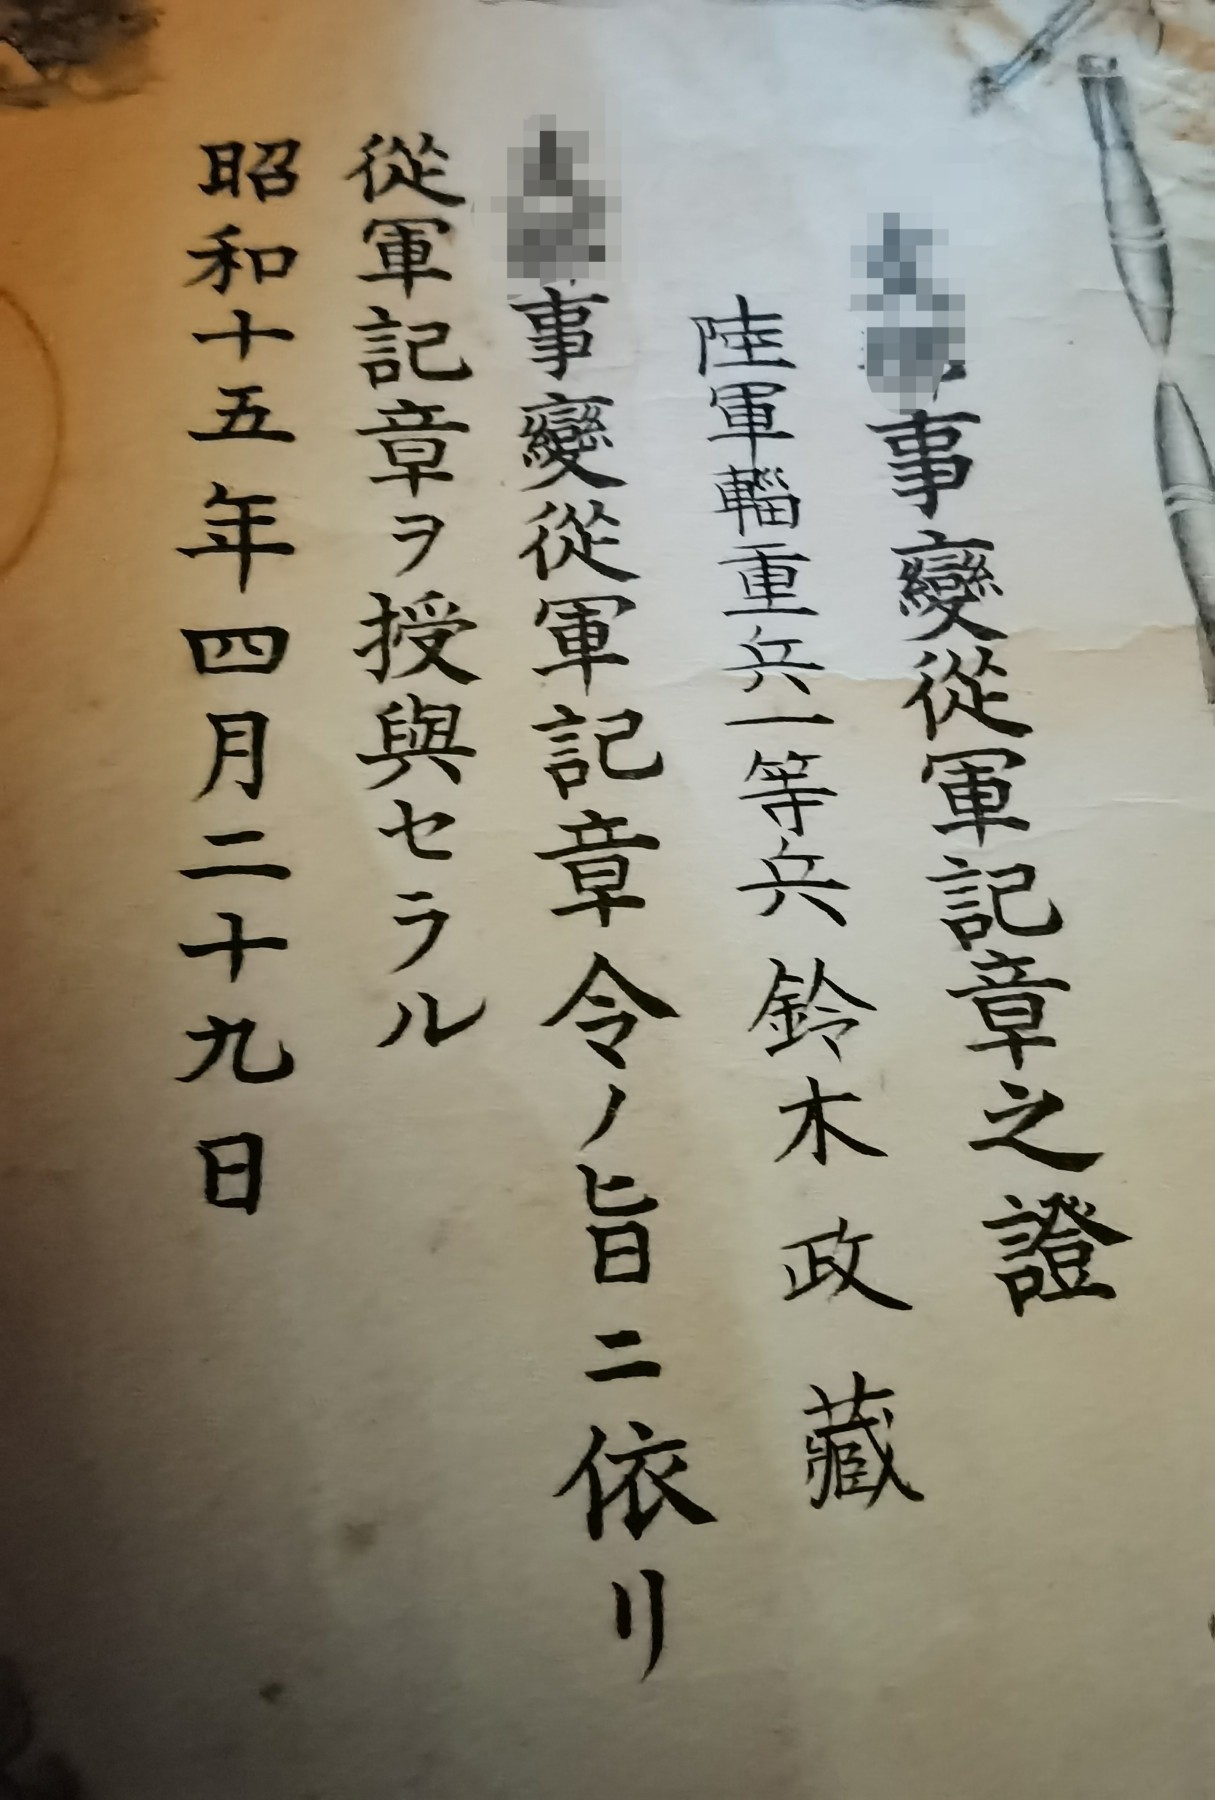 事變從軍記章之證
陸軍輜重兵一等兵 鈴木政藏
事變從軍記章令ノ旨ニ依リ
從軍記章ヲ授與セラル
昭和十五年四月二十九日